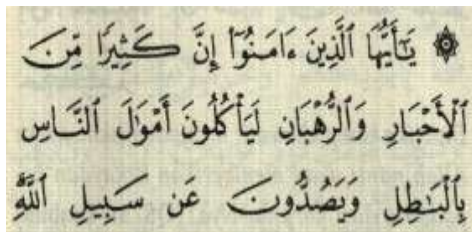 ۞ يَٰٓأَيُّهَا ٱلَّذِينَ ءَامَنُوٓا۟ إِنَّ كَثِيرًا مِّنَ
ٱلْأَحْبَارِ وَٱلرُّهْبَانِ لَيَأْكُلُونَ أَمْوَٰلَ ٱلنَّاسِ
بِٱلْبَٰطِلِ وَيَصُدُّونَ عَن سَبِيلِ ٱللَّهِ